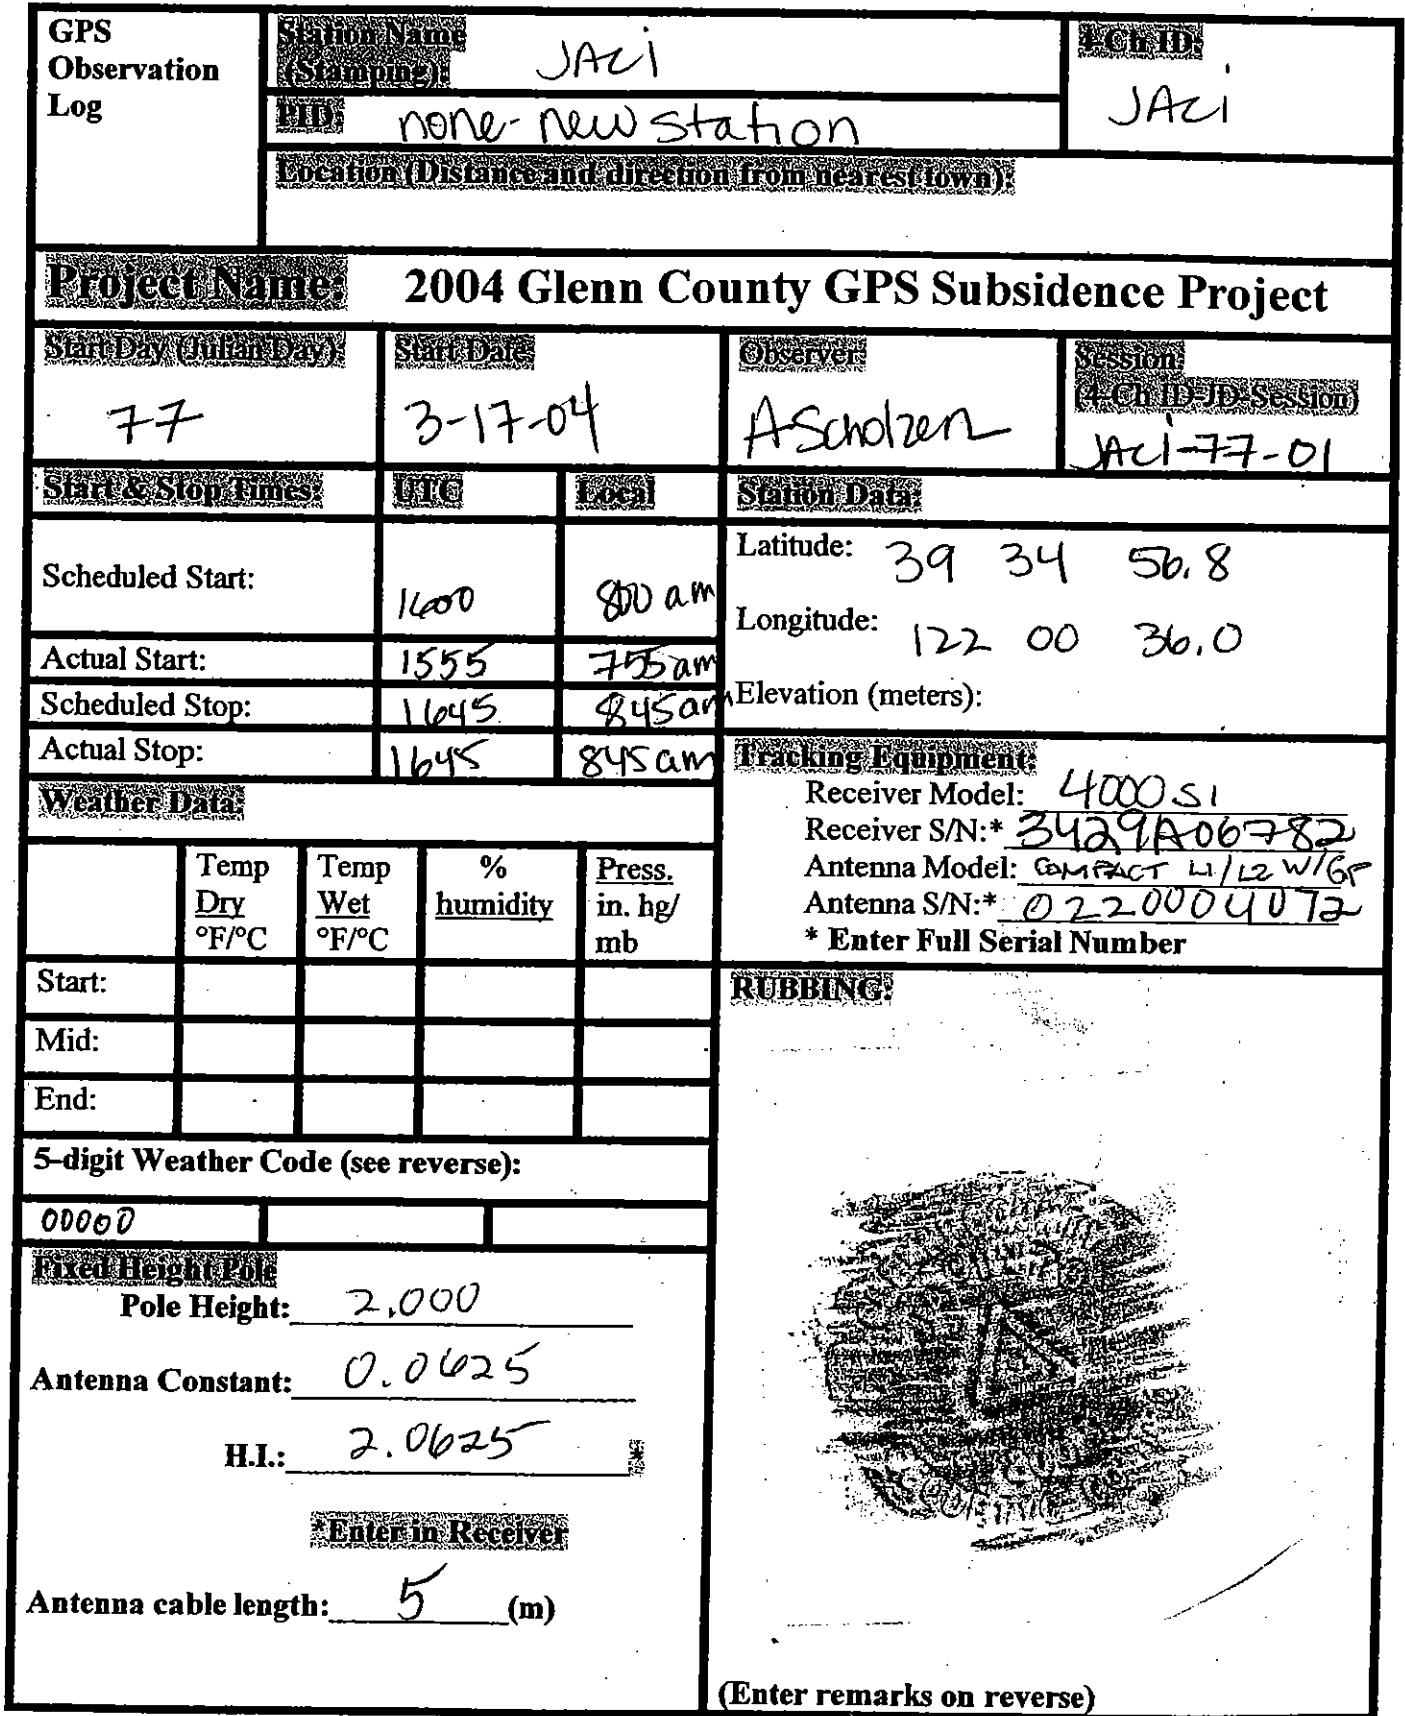 GPS
Observation
Log
Station Name
(Stamping):
JACi
4-Ch ID:
JACi
PID: none- new station
Location (Distance and direction from nearest town):
Project Name: 2004 Glenn County GPS Subsidence Project
Start Day (Julian Day):
77
Start Date:
3-17-04
Observer:
AScholzen
Session:
(4-Ch ID-JD-Session)
JACi-77-01
Start & Stop Times: UTC Local
Scheduled Start: 1600 800 am
Actual Start: 1555 755 am
Scheduled Stop: 1645 845am
Actual Stop: 1645 845am
Station Data:
Latitude: 39 34 56.8
Longitude: 122 00 36.0
Elevation (meters):
Tracking Equipment:
Receiver Model: 4000 SI
Receiver S/N:* 3429A06782
Antenna Model: COMPACT L1/L2 W/GP
Antenna S/N:* 0220004072
* Enter Full Serial Number
Weather Data:
Temp
Dry
°F/°C
Temp
Wet
°F/°C
%
humidity
Press.
in. hg/
mb
Start:
Mid:
End:
5-digit Weather Code (see reverse):
00000
Fixed Height Pole
Pole Height: 2.000
Antenna Constant: 0.0625
H.I.: 2.0625 *
*Enter in Receiver
Antenna cable length: 5 (m)
RUBBING:
(Enter remarks on reverse)